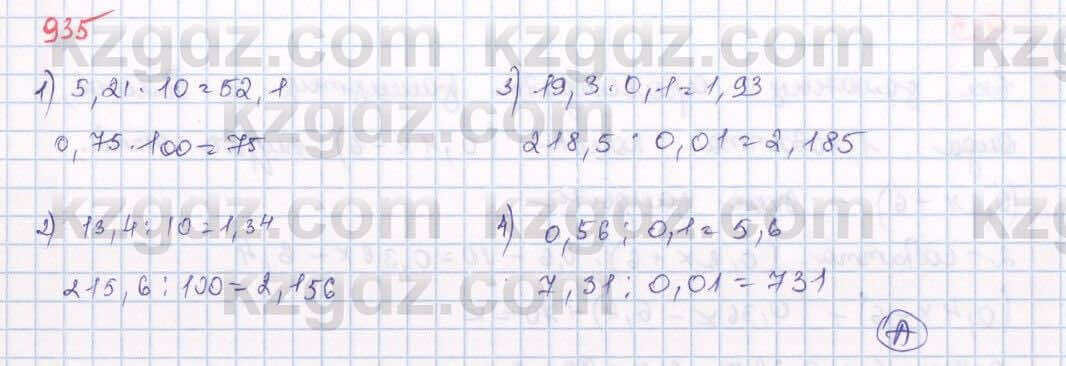 935
1) 5,21 · 10 = 52,1
0,75 · 100 = 75
2) 13,4 : 10 = 1,34
215,6 : 100 = 2,156
3) 19,3 · 0,1 = 1,93
218,5 : 0,01 = 2,185
4) 0,56 : 0,1 = 5,6
7,31 : 0,01 = 731
A
kzgdz.com
kzgdz.com
kzgdz.com
kzgdz.com